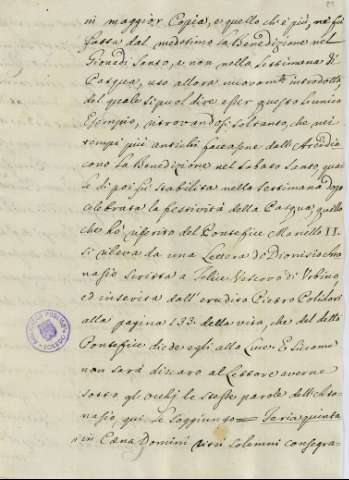 in maggior Copia, e quello che è più, ne fù
fatta dal medesimo la Benedizione nel
Giovedì Santo, e non nella Settimana di
Pasqua, uso allora nuovamte introdotto,
del quale si può dire esser questo l'unico
Esempio, ritrovandosi soltanto, che nei
tempi più antichi faceasene dall'Arcidia
cono la Benedizione nel Sabato Santo, qua
le di poi fù stabilita nella Settimana dopo
celebrata la festività della Pasqua, quello
che hò riferito del Pontefice Marcello II.
si rileva da una Lettera di Dionisio Ata
nasio scritta a Felice Vescovo di
ed inserita dall'erudito Pietro Polidori
alla pagina 133. della vita, che del detto
Pontefice diede egli alla Luce. E siccome
non sarà discaro al Lettore averne
sotto gli occhj le stesse parole dell'Ata
nasio, qui le soggiungo = Feria quinta
in Cæna Domini ritu solemni consegra-